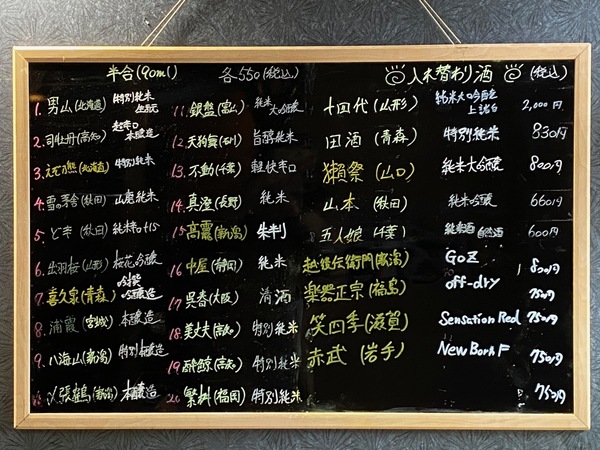 半合(90ml) 各550(税込)
1. 男山(北海道) 特別純米
2. 司牡丹(高知) 超辛口 本醸造
3. (北海道) 特別純米
4. 雪の茅舎(秋田) 山廃純米
5. ど辛(秋田) 純米 +15
6. 出羽桜(山形) 桜花吟醸
7. 喜久泉(青森) 吟醸
8. 浦霞(宮城) 本醸造
9. 八海山(新潟) 特別本醸造
〆張鶴(新潟) 本醸造
11. 銀盤(富山) 純米大吟醸
12. 天狗舞(石川) 旨醇純米
13. 不動(千葉) 軽快辛口
14. 真澄(長野) 純米
15. (新潟)
16. (静岡) 純米
17. 呉春(大阪) 清酒
18. 美丈夫(高知) 特別純米
19. 酔鯨(高知) 特別純米
20. 繁桝(福岡) 特別純米
入れ替わり酒 (税込)
十四代(山形) 純米大吟醸 上諸白 2,000円
田酒(青森) 特別純米 830円
獺祭(山口) 純米大吟醸 800円
山本(秋田) 純米吟醸 660円
五人娘(千葉) 純米酒 自然酒 600円
越後伝衛門(新潟) GoZ 800円
楽器正宗(福島) off-dry 750円
笑四季(滋賀) Sensation Red 750円
赤武(岩手) NewBorn F 750円
750円